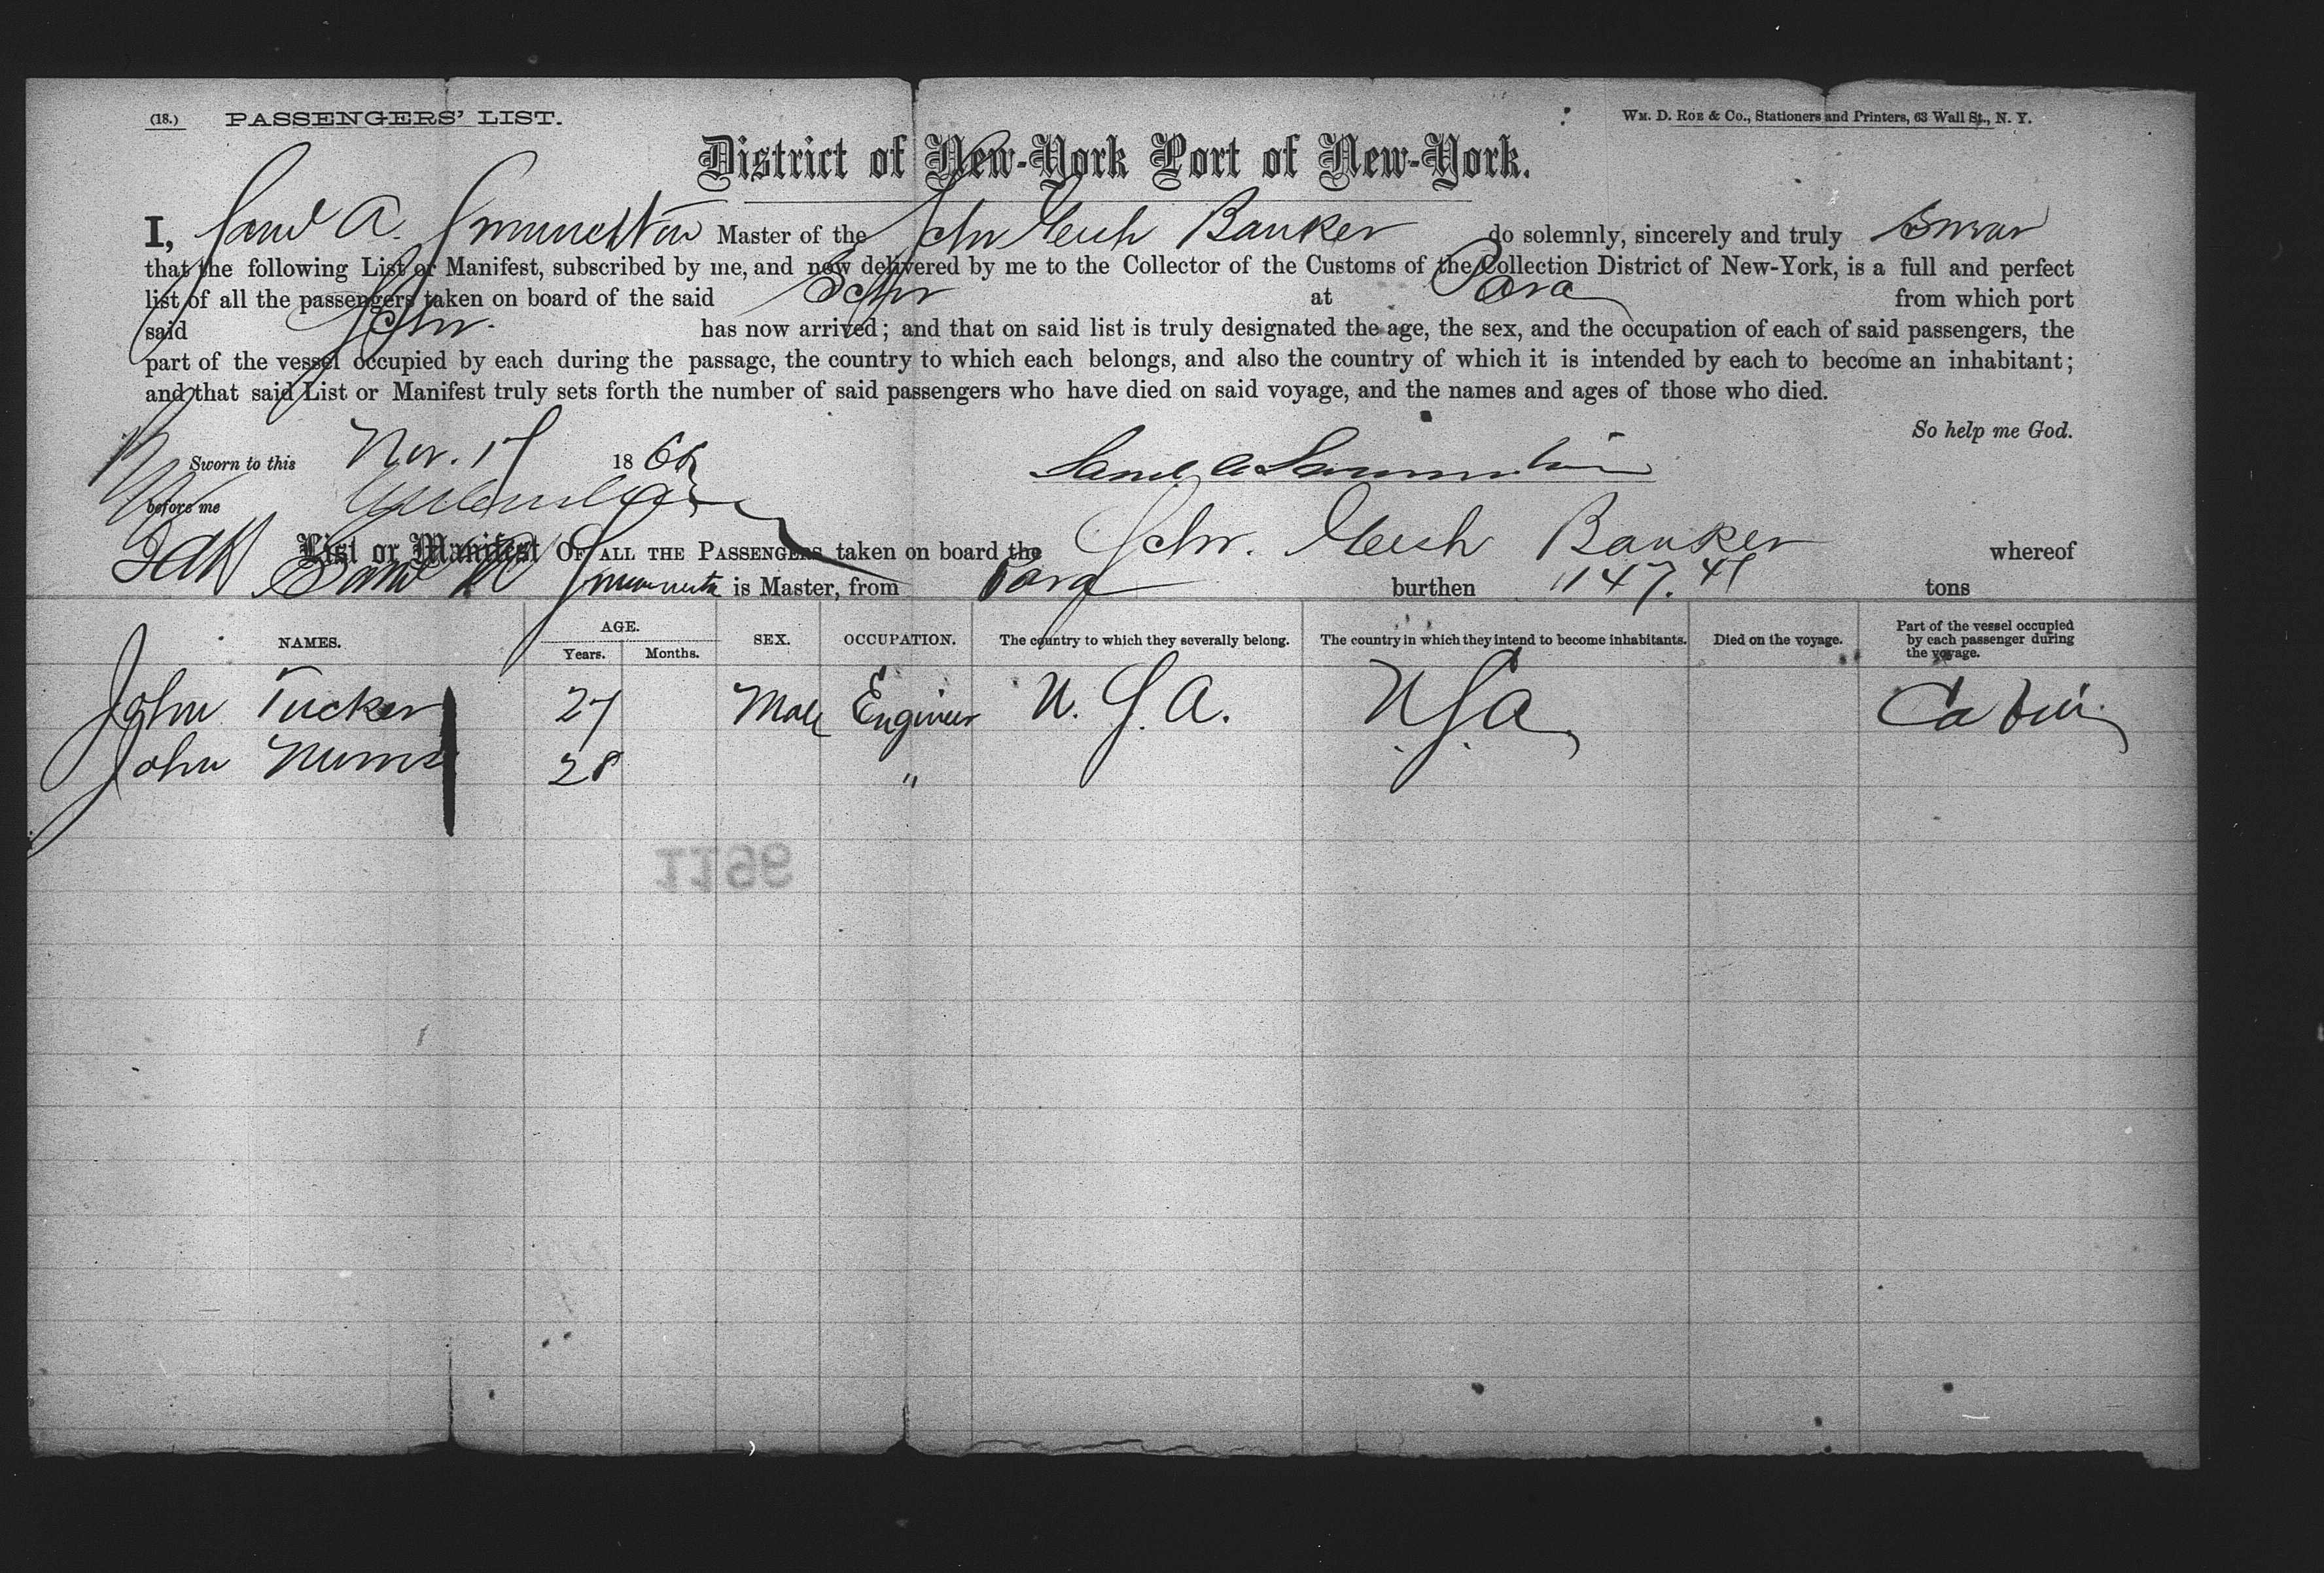 (18.) PASSENGERS' LIST.
WM. D. ROE & CO., Stationers and Printers, 63 Wall St., N. Y.
District of New-York Port of New-York.
I, Saml A. Master of the Schr Banker do solemnly, sincerely and truly swear
that the following List or Manifest, subscribed by me, and now delivered by me to the Collector of the Customs of the Collection District of New-York, is a full and perfect
list of all the passengers taken on board of the said Schr at Para from which port
said Schr. has now arrived; and that on said list is truly designated the age, the sex, and the occupation of each of said passengers, the
part of the vessel occupied by each during the passage, the country to which each belongs, and also the country of which it is intended by each to become an inhabitant;
and that said List or Manifest truly sets forth the number of said passengers who have died on said voyage, and the names and ages of those who died.
So help me God.
Sworn to this Nov. 17 1866
Saml A
before me
List or Manifest OF ALL THE PASSENGERS taken on board the Schr. Banker whereof
Saml A is Master, from Para burthen 147. tons
NAMES. AGE. SEX. OCCUPATION. The country to which they severally belong. The country in which they intend to become inhabitants. Died on the voyage. Part of the vessel occupied by each passenger during the voyage.
Years. Months.
John Tucker 27 Male Engineer U. S. A. U.S.A. Cabin
John 28 "
1196